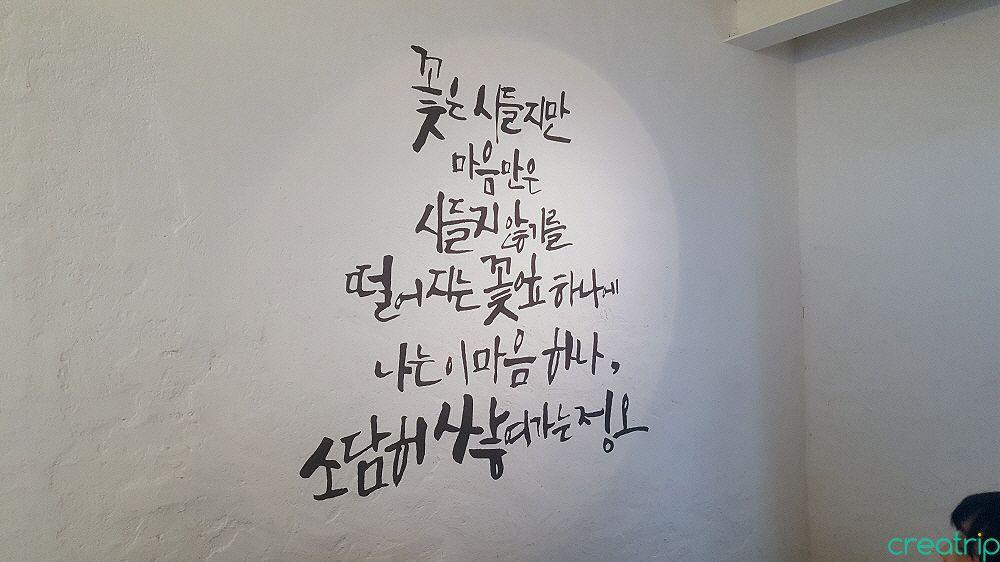 꽃은 시들지만
마음만은
시들지 않기를
떨어지는 꽃잎 하나에
나는 이 마음 하나,
소담히
가는 정오
creatrip